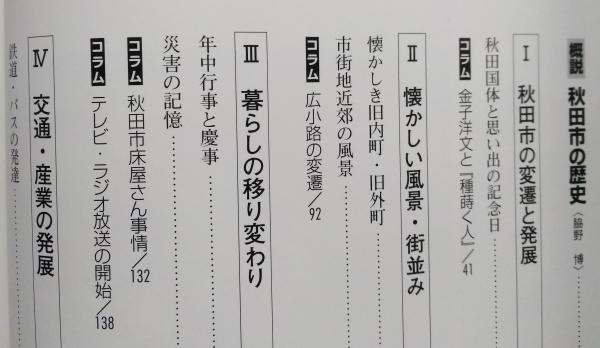 概説 秋田市の歴史〈脇野 博〉…………
Ⅰ 秋田市の変遷と発展
秋田国体と思い出の記念日…………
コラム 金子洋文と『種蒔く人』／41
Ⅱ 懐かしい風景・街並み
懐かしき旧内町・旧外町…………
市街地近郊の風景…………
コラム 広小路の変遷／92
Ⅲ 暮らしの移り変わり
年中行事と慶事…………
災害の記憶…………
コラム 秋田市床屋さん事情／132
コラム テレビ・ラジオ放送の開始／138
Ⅳ 交通・産業の発展
鉄道・バスの発達…………